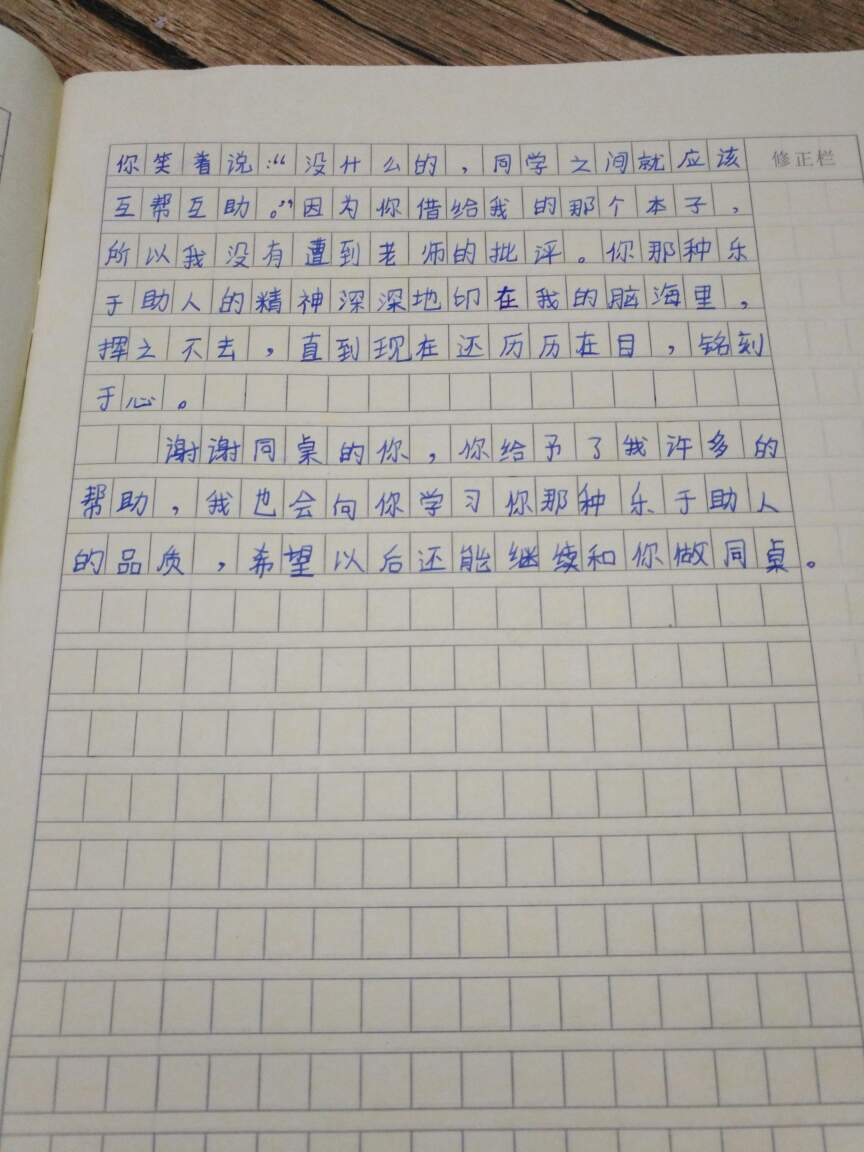 你笑着说:“没什么的，同学之间就应该
修正栏
互帮互助。”因为你借给我的那个本子，
所以我没有遭到老师的批评。你那种乐
于助人的精神深深地印在我的脑海里，
挥之不去，直到现在还历历在目，铭刻
于心。
谢谢同桌的你，你给予了我许多的
帮助，我也会向你学习你那种乐于助人
的品质，希望以后还能继续和你做同桌。